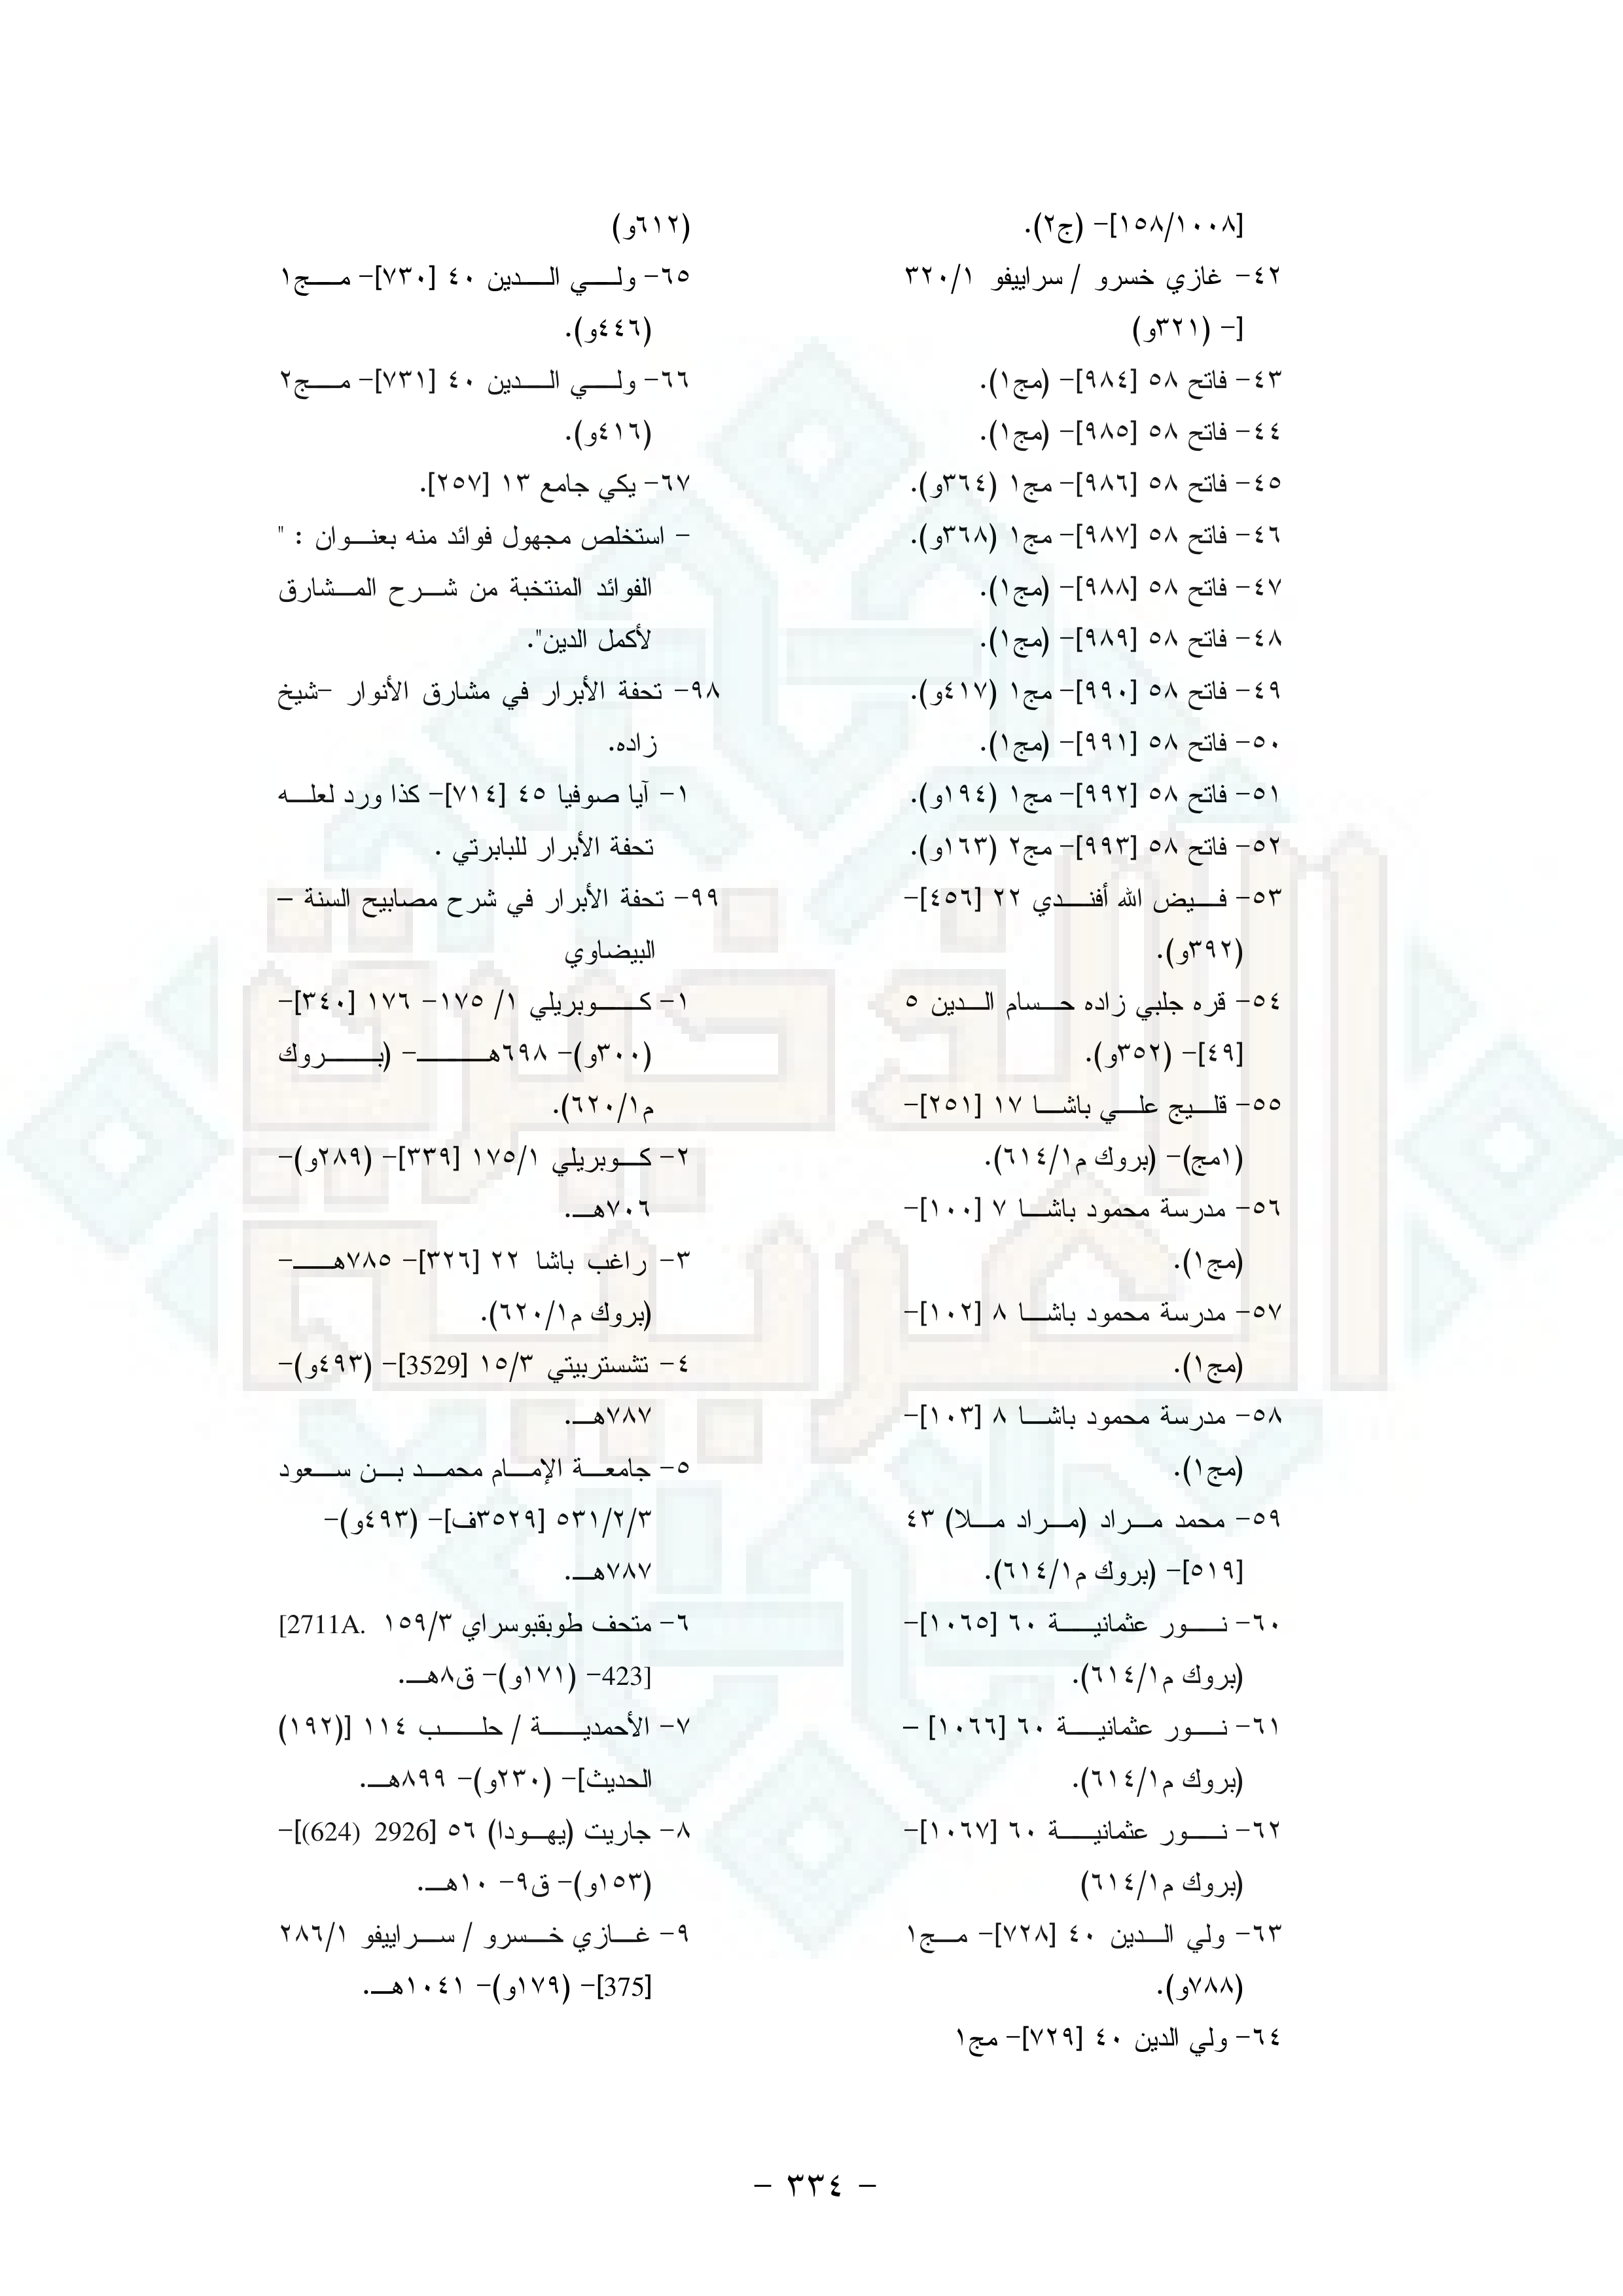 [١٥٨/١٠٠٨]- (ج٢).
٤٢- غازي خسرو / سراييفو ٣٢٠/١
[- (٣٢١و)
٤٣- فاتح ٥٨ [٩٨٤]- (مج١).
٤٤- فاتح ٥٨ [٩٨٥]- (مج١).
٤٥- فاتح ٥٨ [٩٨٦]- مج١ (٣٦٤و).
٤٦- فاتح ٥٨ [٩٨٧]- مج١ (٣٦٨و).
٤٧- فاتح ٥٨ [٩٨٨]- (مج١).
٤٨- فاتح ٥٨ [٩٨٩]- (مج١).
٤٩- فاتح ٥٨ [٩٩٠]- مج١ (٤١٧و).
٥٠- فاتح ٥٨ [٩٩١]- (مج١).
٥١- فاتح ٥٨ [٩٩٢]- مج١ (١٩٤و).
٥٢- فاتح ٥٨ [٩٩٣]- مج٢ (١٦٣و).
٥٣- فيض الله أفندي ٢٢ [٤٥٦]-
(٣٩٢و).
٥٤- قره جلبي زاده حسام الدين ٥
[٤٩]- (٣٥٢و).
٥٥- قليج علي باشا ١٧ [٢٥١]-
(١مج)- (بروك م٦١٤/١).
٥٦- مدرسة محمود باشا ٧ [١٠٠]-
(مج١).
٥٧- مدرسة محمود باشا ٨ [١٠٢]-
(مج١).
٥٨- مدرسة محمود باشا ٨ [١٠٣]-
(مج١).
٥٩- محمد مراد (مراد ملا) ٤٣
[٥١٩]- (بروك م٦١٤/١).
٦٠- نور عثمانية ٦٠ [١٠٦٥]-
(بروك م٦١٤/١).
٦١- نور عثمانية ٦٠ [١٠٦٦] -
(بروك م٦١٤/١).
٦٢- نور عثمانية ٦٠ [١٠٦٧]-
(بروك م٦١٤/١)
٦٣- ولي الدين ٤٠ [٧٢٨]- مج١
(٧٨٨و).
٦٤- ولي الدين ٤٠ [٧٢٩]- مج١
(٦١٢و)
٦٥- ولي الدين ٤٠ [٧٣٠]- مج١
(٤٤٦و).
٦٦- ولي الدين ٤٠ [٧٣١]- مج٢
(٤١٦و).
٦٧- يكي جامع ١٣ [٢٥٧].
- استخلص مجهول فوائد منه بعنوان : "
الفوائد المنتخبة من شرح المشارق
لأكمل الدين".
٩٨- تحفة الأبرار في مشارق الأنوار -شيخ
زاده.
١- آيا صوفيا ٤٥ [٧١٤]- كذا ورد لعله
تحفة الأبرار للبابرتي .
٩٩- تحفة الأبرار في شرح مصابيح السنة -
البيضاوي
١- كوبريلي ١/ ١٧٥- ١٧٦ [٣٤٠]-
(٣٠٠و)- ٦٩٨هـ- (بروك
م٦٢٠/١).
٢- كوبريلي ١٧٥/١ [٣٣٩]- (٢٨٩و)-
٧٠٦هـ.
٣- راغب باشا ٢٢ [٣٢٦]- ٧٨٥هـ-
(بروك م٦٢٠/١).
٤- تشستربيتي ١٥/٣ [3529]- (٤٩٣و)-
٧٨٧هـ.
٥- جامعة الإمام محمد بن سعود
٥٣١/٢/٣ [٣٥٢٩ف]- (٤٩٣و)-
٧٨٧هـ.
٦- متحف طوبقبوسراي ١٥٩/٣ [2711A.
423]- (١٧١و)- ق٨هـ.
٧- الأحمدية / حلب ١١٤ [(١٩٢)
الحديث]- (٢٣٠و)- ٨٩٩هـ.
٨- جاريت (يهودا) ٥٦ [2926 (624)]-
(١٥٣و)- ق٩- ١٠هـ.
٩- غازي خسرو / سراييفو ٢٨٦/١
[375]- (١٧٩و)- ١٠٤١هـ.
- ٣٣٤ -
الذخيرة
العربية